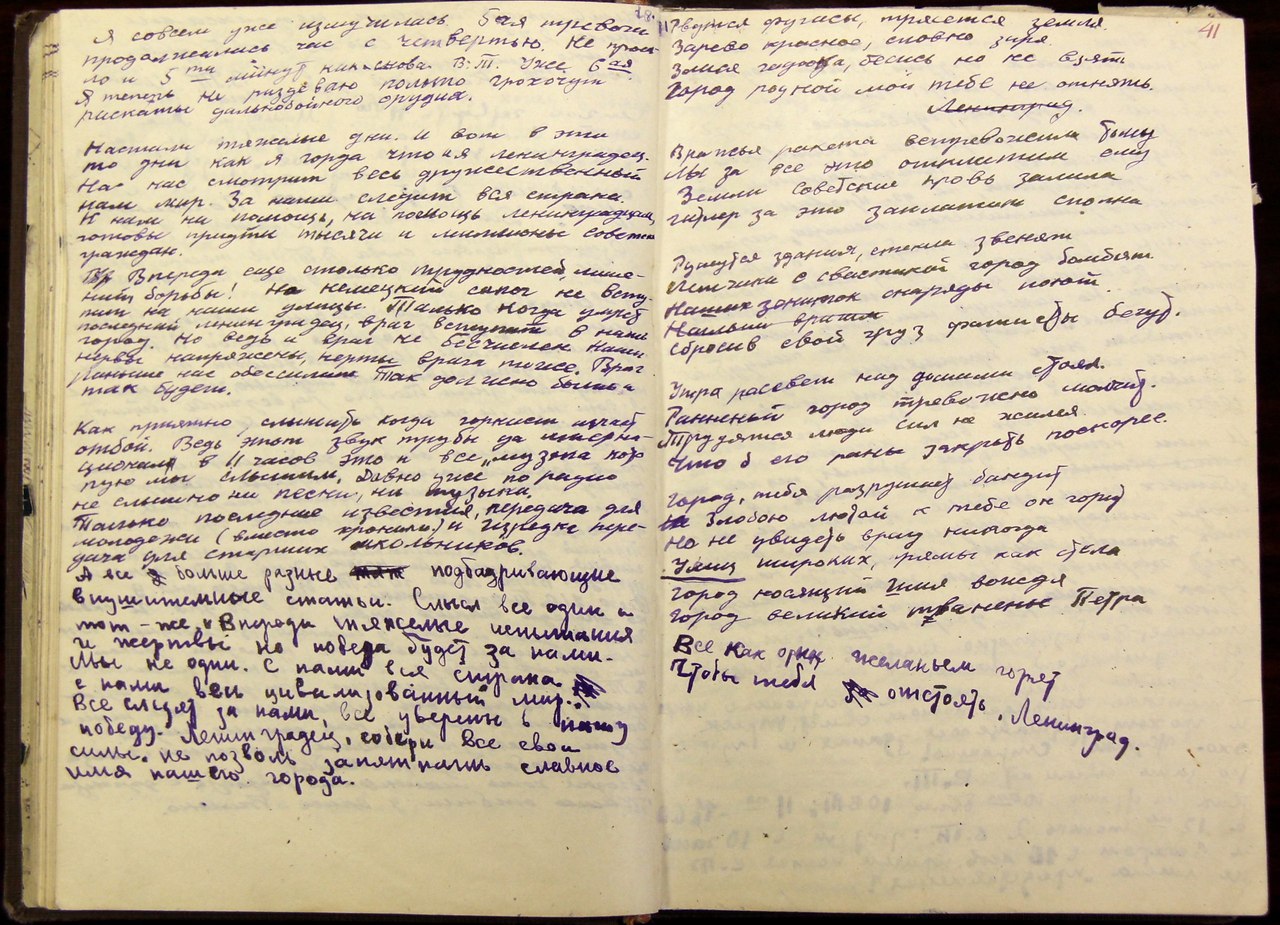 28.
Я совсем уже измучилась. 5ая тревога
продолжалась час с четвертью. Не прош-
ло и 5ти минут как снова В.Т. Уже 6ая
Я теперь не раздеваю польто. Грохочут
раскаты дальнобойного орудия.
Настали тяжелые дни. И вот в эти
то дни как я горда что я ленинградец.
На нас смотрит весь дружественный
нам мир. За нами следит вся страна.
К нам на помощь, на помощь ленинградцам,
готовы придти тысячи и миллионы советск
граждан.
Впереди еще столько трудностей, лише-
ний борьбы! Но немецкий сапог не всту-
пит на наши улицы. Только когда умрет
последний ленинградец, враг вступит в наш
город. Но ведь и враг не бесчислен. Наши
нервы напряжены, нервы врага тоже. Враг
раньше нас обессилит. Так должно быть и
так будет.
Как приятно, слышать когда горнист играет
отбой. Ведь этот звук трубы да интерна-
ционал в 11 часов это и все „музыка кото
рую мы слышим. Давно уже по радио
не слышно ни песни, ни музыки.
Только последние известия, передача для
молодежи (вместо хроники) и изредка пере-
дача для старших школьников.
А все больше разные подбадривающие
внушительные статьи. Смысл все один и
тот-же. „Впереди тяжелые испытания
и жертвы но победа будет за нами.
Мы не одни. С нами вся страна.
с нами весь цивилизованный мир.
Все следят за нами, все уверены в нашу
победу. Ленинградец, собери все свои
силы. не позволь запятнать славное
имя нашего города.
41
Рвутся фугасы, трясется земля
Зарево красное, словно заря.
Злися гадюка, бесись но не взять
Город родной мой тебе не отнять.
Ленинград.
Вражья ракета встревожила тьму
Мы за все это отплатим ему
Земли советские кровь залила
гитлер за это заплатит сполна
Рушутся здания, стекла звенят
Летчики с свастикой город бомбят
Наших зениток снаряды поют.
Сбросив свой груз фашисты бегут.
Утра расcвет над домами стоял.
Раненый город тревожно молчит.
Трудятся люди сил не жалея
Что б его раны закрыть поскорее.
Город, тебя разрушает бандит
Злобою лютой к тебе он горит
Но не увидеть врагу никогда
Улиц широких, прямы как стела
Город носящий имя вождя
Город великий творенье Петра
Все как один желаньем горят
Чтобы тебя отстоять, Ленинград.